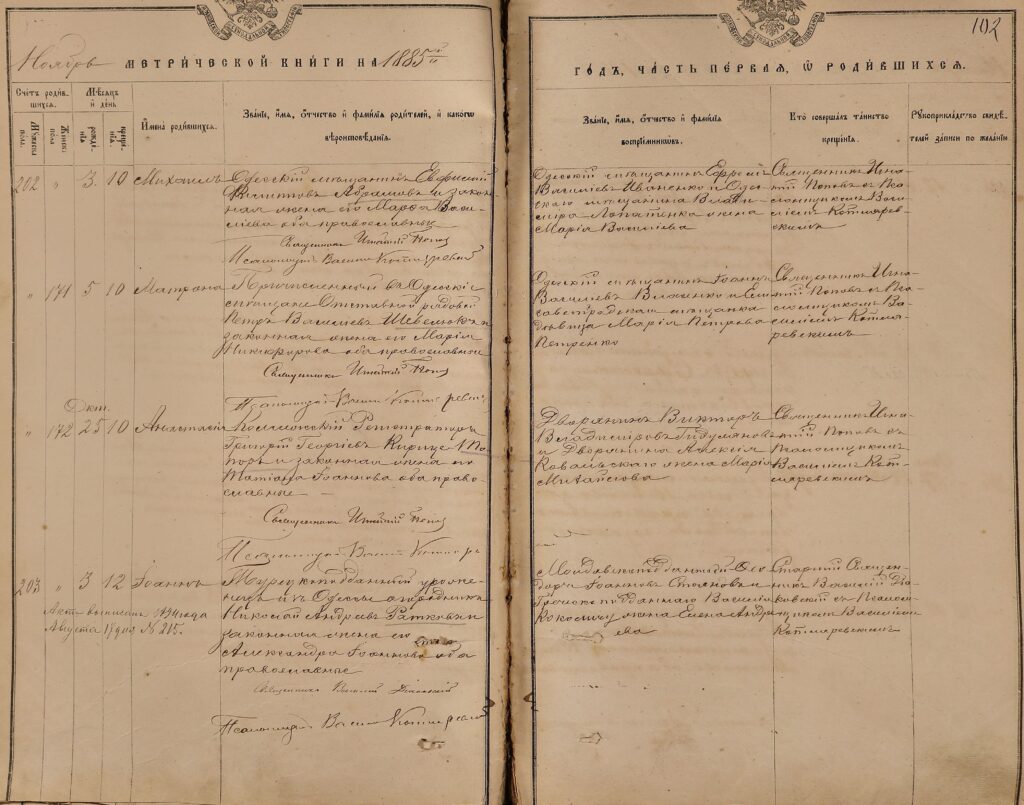 102
Ноябрь МЕТРИЧЕСКОЙ КНИГИ НА 1885й
ГОДЪ, ЧАСТЬ ПЕРВАЯ, Ѡ РОДИВШИХСЯ.
Счетъ родившихся.
Мужеска пола
Женска пола
Мѣсяцъ и день
рожденія
крещенія
Имена родившихся.
Званіе, имя, отчество и фамилія родителей, и какого
вѣроисповѣданія.
Званіе, имя, отчество и фамилія
воспріемниковъ.
Кто совершалъ таинство
крещенія.
Рукоприкладство свидѣтелей
записи по желанію
202 " 3 10 Михаилъ
Одесскій мѣщанинъ Ефримій
Филиповъ Абрамовъ и законная
жена его Марѳа Васильева
оба православные
Священникъ Игнатій Поповъ
Псаломщикъ Василій Котляревскій
Одесскій мѣщанинъ Ефремъ
Васильевъ Иваненко и Одесскаго
мѣщанина Владиміра
Лопатенка жена
Марія Васильева
Священникъ Игнатій
Поповъ съ Псаломщикомъ
Василіемъ Котляревскимъ
" 171 5 10 Матрона
Причисленный въ Одесскіе
мѣщане Отставной рядовой
Петръ Васильевъ Шевелюкъ и
законная жена его Марія
Никифорова оба православные
Священникъ Игнатій Поповъ
Псаломщикъ Василій Котляревскій
Одесскій мѣщанинъ Іоаннъ
Васильевъ Власенко и
Елисаветградская мѣщанка
вдовица Марія Петрова
Петренко
Священникъ Игнатій
Поповъ съ Псаломщикомъ
Василіемъ Котляревскимъ
Окт.
" 172 25 10 Анатолій
Коллежскій Регистраторъ
Григорій Георгіевъ
и законная жена его
Татіана Іоаннова оба православные
Священникъ Игнатій Поповъ
Псаломщикъ Василій Котляревскій
Дворянинъ Викторъ
Владиміровъ
и Дворянина Алексія
Ковальскаго жена Марія
Михайлова
Священникъ Игнатій
Поповъ съ
Псаломщикомъ
Василіемъ Котляревскимъ
203 " 3 12 Іоаннъ
Актъ выписанъ 1894 года
Августа 17 дня № 215.
Турецкоподданный уроженецъ
изъ Одессы огородникъ
Николай Андреевъ
законная жена его
Александра Іоаннова оба
православные
Священникъ Василій
Псаломщикъ Василій Котляревскій
Молдавскоподданный
Іоанновъ Стояновъ и
Грекоподданнаго Василія
жена Елена Андреева
Старшій Священникъ
Василій
съ Псаломщикомъ
Василіемъ
Котляревскимъ